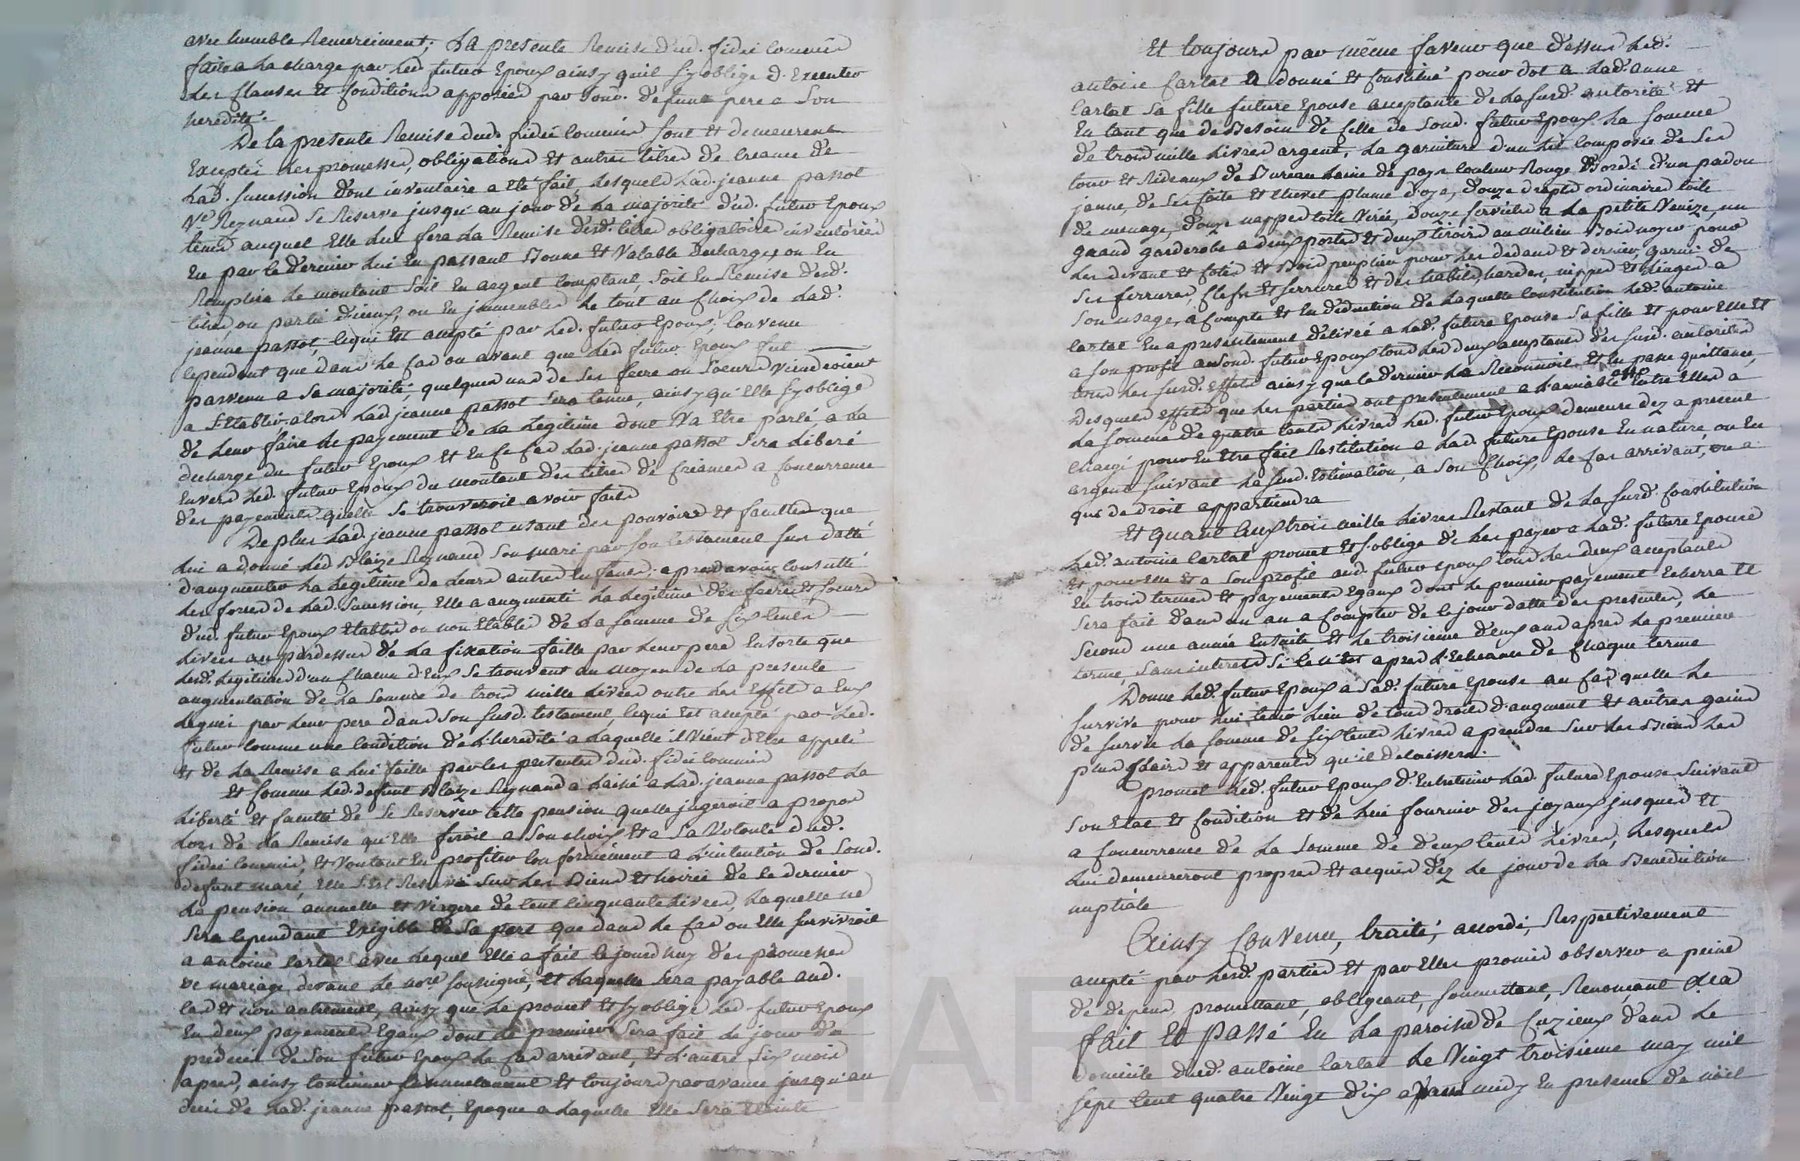 avec humble Remerciment; La presente Remise dud. fidei commis
faite a La charge par led. futur Epoux ainsy quil sy oblige d'Executer
Les clauses Et conditions apposées par Soud. defunt pere a Son
heredité.
De la presente Remise dud. fidei commis sont Et demeurent
Exceptés Les promesses, obligations Et autres titres de creance de
Lad. succession dont inventaire a eté fait, Lesquels Lad. jeanne passot
Ve. Reynaud Se Reserve jusqu'au jour de La majorité dud. futur Epoux
tems auquel Elle Lui fera La Remise desd. titres obligatoires inventoriés
En par le dernier Lui En passant Bonne Et Valable decharge, ou En
Remplira Le montant Soit En argent comptant, Soit En Remise desd.
titres ou partie d'iceux, ou En jmmeubles Le tout au choix de Lad.
jeanne passot, ce qui Est accepté par Led. futur Epoux, convenu
cependant que dans Le cas ou avant que Led. futur Epoux fut
parvenu a Sa majorité, quelques uns de Ses frere ou Soeurs Viendroient
a S'Etablir alors Lad. jeanne passot Sera tenue, ainsy qu'Elle Sy oblige
de Leur faire Le payement de La Legitime dont Va Etre parlé, a La
decharge du futur Epoux Et En ce cas Lad. jeanne passot Sera Liberé
Envers Led. futur Epoux du montant des titres de creances a concurrence
des payements quelle Se trouveroit avoir faits
De plus Lad. jeanne passot usant des pouvoirs Et facultés que
Lui a donné Led. Blaize Reynaud Son mari par Son testament Sus datté
d'augmenter La Legitime de Leurs autres Enfants, apres avoir consulté
Les forces de Lad. succession, Elle a augmenté La Legitime des freres Et Soeurs
dud. futur Epoux Etablis ou non Etablis de La Somme de Six cents
Livres au pardessus de La fixation faitte par Leur pere En sorte que
Lesd. Legitimes d'un chacun d'Eux Se trouvent au moyen de La presente
augmentation de La Somme de trois mille Livres outre Les Effets a Eux
Legués par Leur pere dans Son Susd. testament, ce qui Est accepté par Led.
futur comme une condition de L'heredité a Laquelle il Vient d'Etre appelé
Et de La Remise a Lui faitte par les presentes dud. fidei commis
Et comme Led. defunt Blaize Reynaud a Laissé a Lad. jeanne passot La
Liberté Et faculté de Se Reserver telle pension quelle jugeroit a propos
Lors de La Remise qu'Elle feroit a Son choix Et a Sa Volonté dud.
fidei commis, Et Voulant En profiter conformément a L'intention de Soud.
defunt mari, Elle S'est Reservé Sur Les Biens Et hoirie de ce dernier
La pension annuelle Et Viagere de cent cinquante Livres, Laquelle ne
Sera cependant Exigible de Sa part que dans Le cas ou Elle Surviroit
a antoine Cartal avec Lequel Elle a fait cejourdhuy des promesses
de mariage devant Le nore. Soussigné, Et Laquelle Sera payable aud.
cas Et non autrement, ainsy que Le promet Et Sy oblige Led. futur Epoux
En deux payements Egaux dont Le premier Sera fait Le jour du
predeces de Son futur Epoux Le cas arrivant, Et L'autre Six mois
apres, ainsy continuer Semestrement Et toujours par avance jusqu'au
deces de Lad. jeanne passot, Epoque a Laquelle Elle Sera Eteinte
Et toujours par même faveur que dessus Led.
antoine Cartal a donné Et constitué pour dot a Lad. anne
Cartal Sa fille future Epouse acceptante de La Susd. autorité Et
En tant que de Besoin de celle de Soud. futur Epoux La Somme
de trois mille Livres argent, La garniture d'un Lit composée de Ses
tour Et Rideaux de Bureau Laine de pays couleur Rouge Bordé d'un padou
jaune, de Ses coite Et chevet plume d'oye, douze draps ordinaires toile
de menage, douze nappes toile Virée, douze Serviettes a La petite Venize, un
grand garderobe a deux portes Et deux tiroirs au milieu Bois noyer pour
Les devant Et cotés Et Bois peuplier pour Les dedans Et derrier, garni de
Ses ferrures, clefs Et Serrures Et des habits, hardes, nippes Et Linges a
Son usage, a compte Et En deduction de Laquelle Constitution Led. antoine
Cartal En a presentement delivré a Lad. future Epouse Sa fille Et pour Elle Et
a Son profit audit. futur Epoux tous Les deux acceptans des Susd. autorités
tous Les Susd. Effets ainsy que le dernier La Reconnoit Et En passe quittance,
Desquels Effets que Les parties ont presentement a L'amiable Entre Elles a
La Somme de quatre cents Livres Led. futur Epoux demeure dez a present
chargé pour En Etre fait Restitution a Lad. future Epouse En nature ou En
argent Suivant La Susd. Estimation, a Son choix, Le cas arrivant, ou a
qui de Droit appartiendra
Et quant aux trois mille Livres Restant de La Susd. constitution
Led. antoine Cartal promet Et S'oblige de Les payer a Lad. future Epouse
Et pour Elle Et a Son profit aud. futur Epoux tous Les deux acceptants
En trois termes Et payements Egaux dont Le premier payement Echerra Et
Sera fait dans un an a compter de ce jour datte des presentes, Le
Second une année Ensuite Et Le troisieme deux ans apres Le premier
terme, Sans interets Si ce n'est apres L'Echeance de chaque terme
Donne Led. futur Epoux a Sad. future Epouse au cas quelle Le
Survive pour Lui tenir Lieu de tous droits d'augment Et autres gains
de Survie La Somme de Six cents Livres a prendre Sur Les Biens Les
plus Clairs Et apparents qu'il delaissera.
promet Led. futur Epoux d'Entretenir Lad. future Epouse Suivant
Son Etat Et condition Et de Lui fournir des joyaux jusques Et
a concurrence de La Somme de deux cents Livres, Lesquels
Lui demeureront propres Et acquis dez Le jour de La Benediction
nuptiale
Ainsy Convenu, traité, accordé, Respectivement
accepté par Lesd. parties Et par Elles promis observer a peine
de depens, promettant, obligeant, Soumettant, Renonçant &ca
fait Et passé En La paroisse de Cuzieux dans Le
domicile dud. antoine Cartal Le Vingt troisieme may mil
Sept cent quatre Vingt dix apres midy En presence de noël